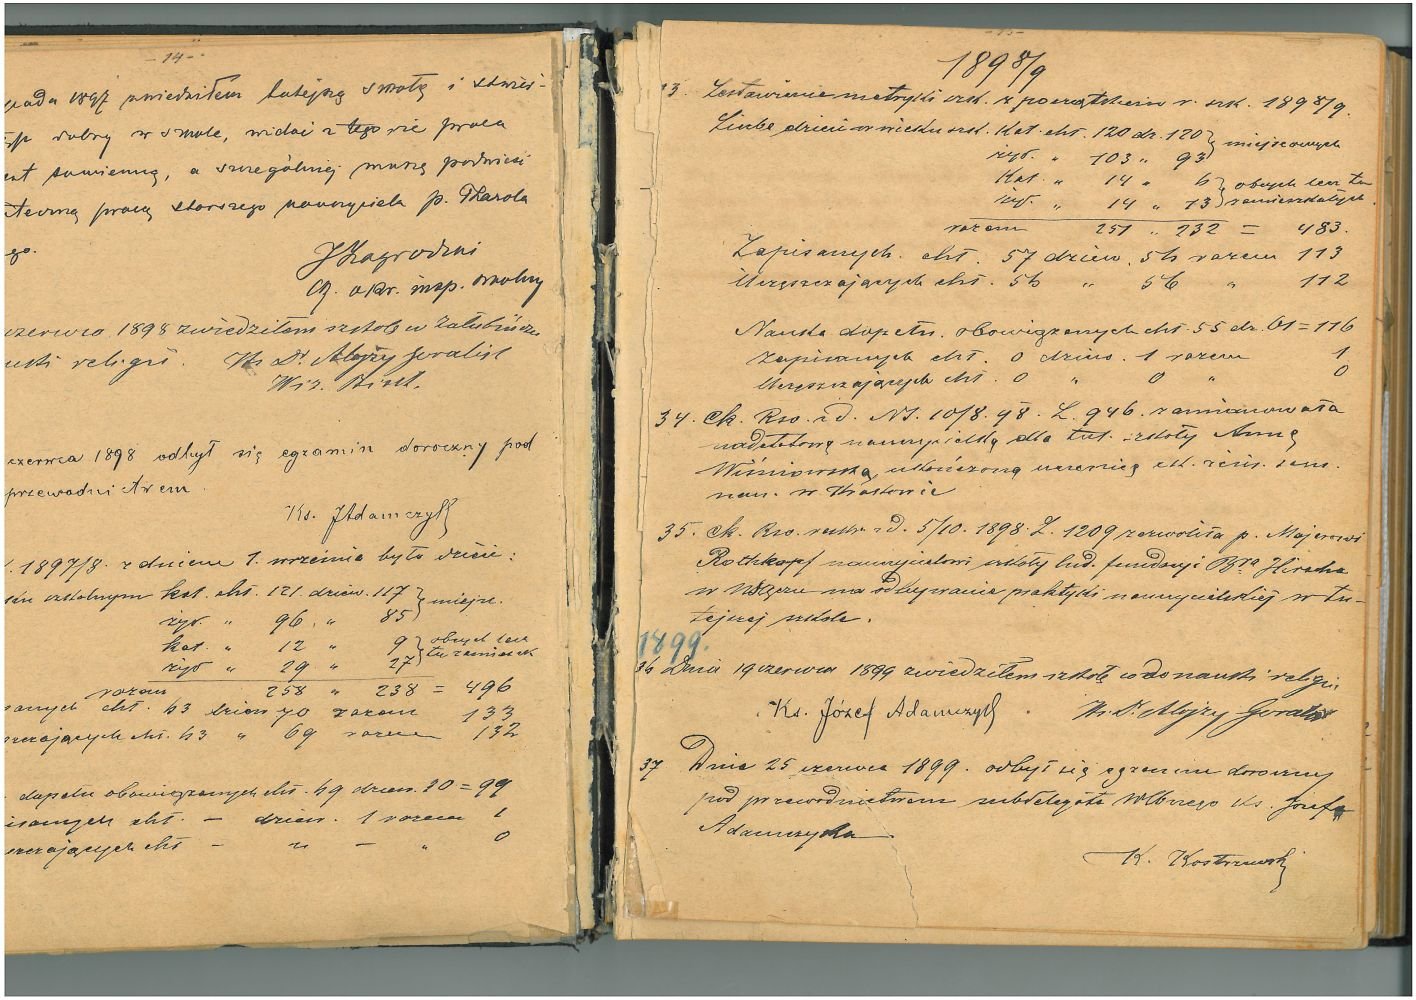 - 14 -
pada 1897 zwiedziłem tutejszą szkołę i stwier-
dobry w szkole, widać z tego że praca
sumienną, a szczególniej muszę podnieść
pracę starszego nauczyciela p. Karola
ego.
JZagrodzki
ck. okr. insp. szkolny
czerwca 1898 zwiedziłem szkołę w Zalubińczu
nauki religii. Ks Dr. Alojzy Goralik
Wiz. Bisk.
czerwca 1898 odbył się egzamin doroczny pod
przewodnictwem
Ks. JAdamczyk
1897/8. z dniem 1. września było dzieci:
szkolnym kat. chł. 121 dziew. 117 } miejsc.
żyd. " 96 " 85
kat. " 12 " 9 } obcych lecz
żyd " 29 " 27 tu zamieszk
razem 258 " 238 = 496
sanych chł. 63 dziew 70 razem 133
szczających chł. 63 " 69 razem 132
dopełn obowiązanych chł. 49 dziew. 20 = 99
isanych chł. - dziew. 1 razem 1
szczających chł - " - " 0
- 15 -
1898/9
33. Zestawienie metryki szk. z początkiem r. szk. 1898/9.
Liczba dzieci w wieku szk. kat. chł. 120 dz. 120 } miejscowych
żyd. " 103 " 93
kat. " 14 " 6 } obcych lecz tu
żyd. " 14 " 13 zamieszkałych.
razem 251 " 232 = 483.
Zapisanych chł. 57 dziew. 56 razem 113
Uczęszczających chł. 56 " 56 " 112
Nauka dopełn. obowiązanych chł 55 dz. 61 = 116
Zapisanych chł. 0 dziew. 1 razem 1
Uczęszczających chł. 0 " 0 " 0
34. Ck. Rso. z d. NS. 10/8. 98. L. 946. zamianowała
nadetatową nauczycielką dla tut. szkoły Annę
Wiśniowską, ukończoną uczenicę ck. żeńs. sem.
nau. w Krakowie
35. Ck. Rso. z d. 5/10. 1898. L. 1209 zezwoliła p. Majerowi
Rothkopf nauczycielowi szkoły lud. fundacyi Bra Hirscha
w N. Sączu na odbywanie praktyki nauczycielskiej w tu-
tejszej szkole.
1899.
36 Dnia 19 czerwca 1899 zwiedziłem szkołę co do nauki religii
Ks. Józef Adamczyk Ks Dr. Alojzy Goralik
37 Dnia 25 czerwca 1899. odbył się egzamin doroczny
pod przewodnictwem subdelegata Wlbnego Ks. Józefa
Adamczyka
K. Kostrzewski